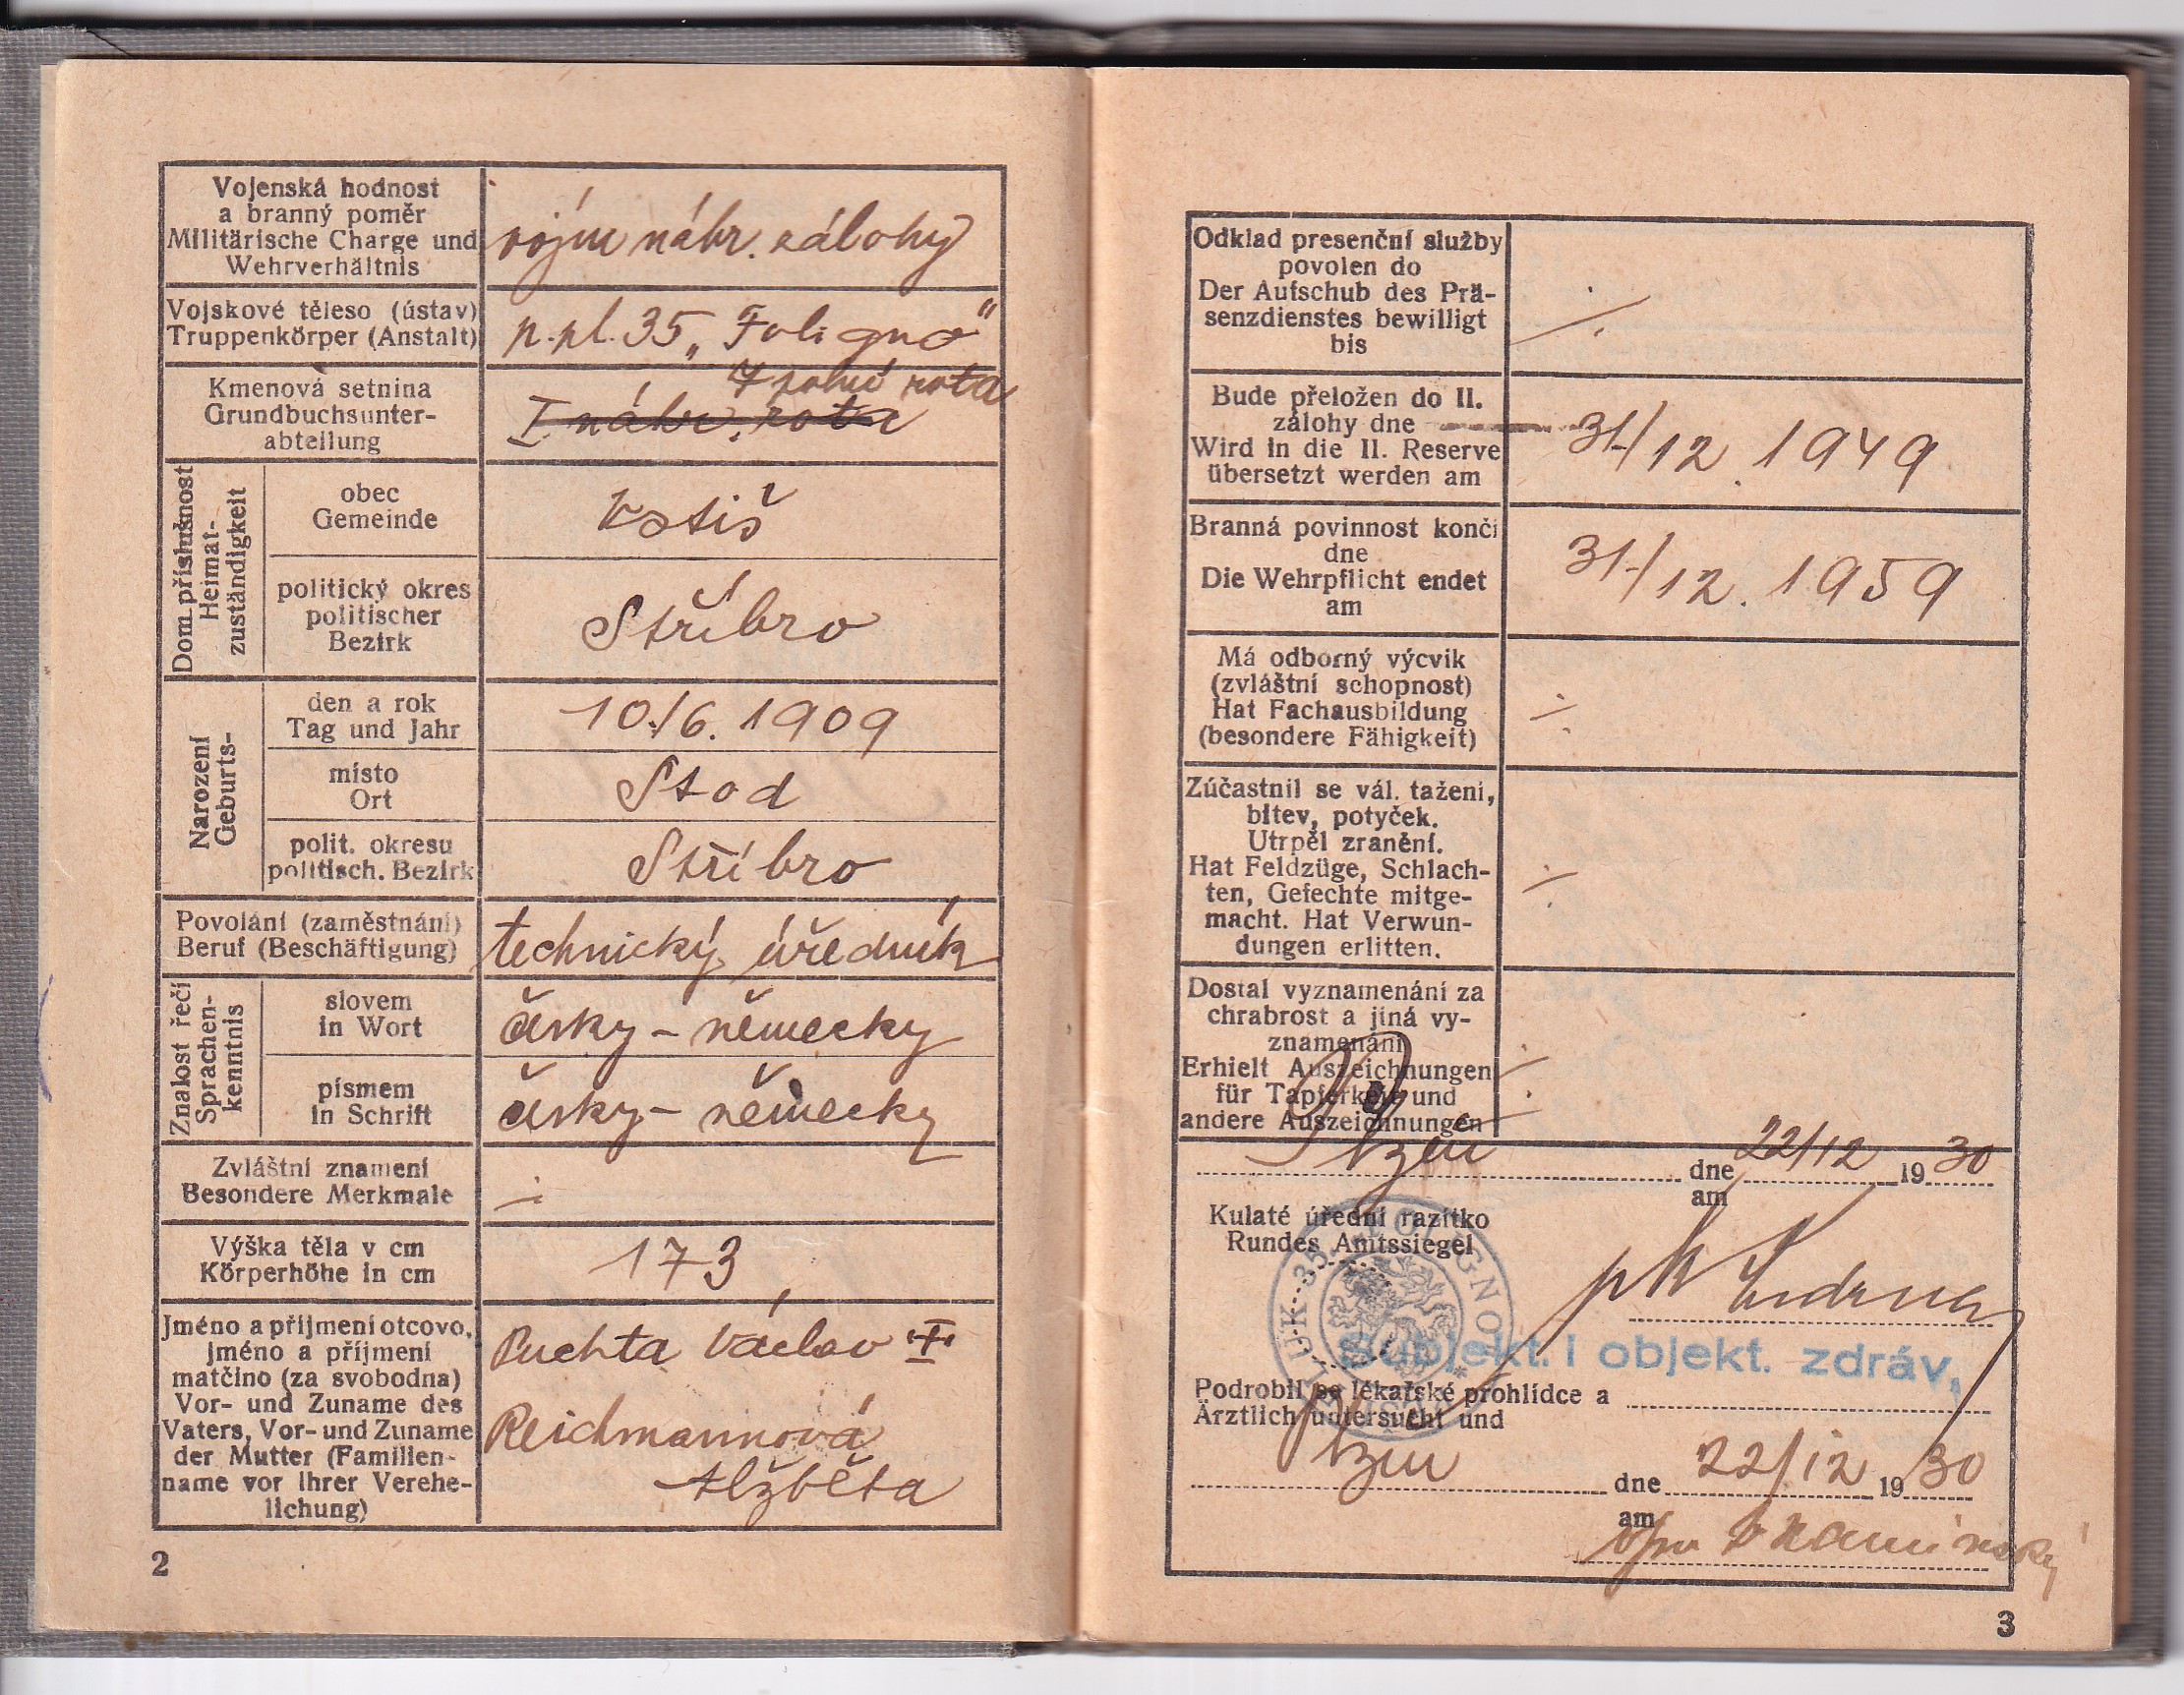 Vojenská hodnost
a branný poměr
Militärische Charge und
Wehrverhältnis
vojín náhr. zálohy
Vojskové těleso (ústav)
Truppenkörper (Anstalt)
p. pl. 35 „Foligno"
Kmenová setnina
Grundbuchsunter-
abteilung
7 polní rota
I. náhr. rota
Dom. příslušnost
Heimat-
zuständigkeit
obec
Gemeinde
politický okres
politischer
Bezirk
Stříbro
Narození
Geburts-
den a rok
Tag und Jahr
10./6. 1909
místo
Ort
Stod
polit. okresu
politisch. Bezirk
Stříbro
Povolání (zaměstnání)
Beruf (Beschäftigung)
technický úředník
Znalost řečí
Sprachen-
kenntnis
slovem
in Wort
česky - německy
písmem
in Schrift
česky - německy
Zvláštní znamení
Besondere Merkmale
Výška těla v cm
Körperhöhe in cm
173
Jméno a příjmení otcovo,
jméno a příjmení
matčino (za svobodna)
Vor- und Zuname des
Vaters, Vor- und Zuname
der Mutter (Familien-
name vor ihrer Verehe-
lichung)
Puchta Václav
Reichmannová
Alžběta
2
Odklad presenční služby
povolen do
Der Aufschub des Prä-
senzdienstes bewilligt
bis
Bude přeložen do II.
zálohy dne
Wird in die II. Reserve
übersetzt werden am
31./12. 1949
Branná povinnost končí
dne
Die Wehrpflicht endet
am
31./12. 1959
Má odborný výcvik
(zvláštní schopnost)
Hat Fachausbildung
(besondere Fähigkeit)
Zúčastnil se vál. tažení,
bitev, potyček.
Utrpěl zranění.
Hat Feldzüge, Schlach-
ten, Gefechte mitge-
macht. Hat Verwun-
dungen erlitten.
Dostal vyznamenání za
chrabrost a jiná vy-
znamenání
Erhielt Auszeichnungen
für Tapferkeit und
andere Auszeichnungen
Plzeň dne 22/12 1930
am
Kulaté úřední razítko
Rundes Amtssiegel
Subjekt. i objekt. zdráv,
Podrobil se lékařské prohlídce a
Ärztlich untersucht und
Plzeň dne 22/12 1930
am
3